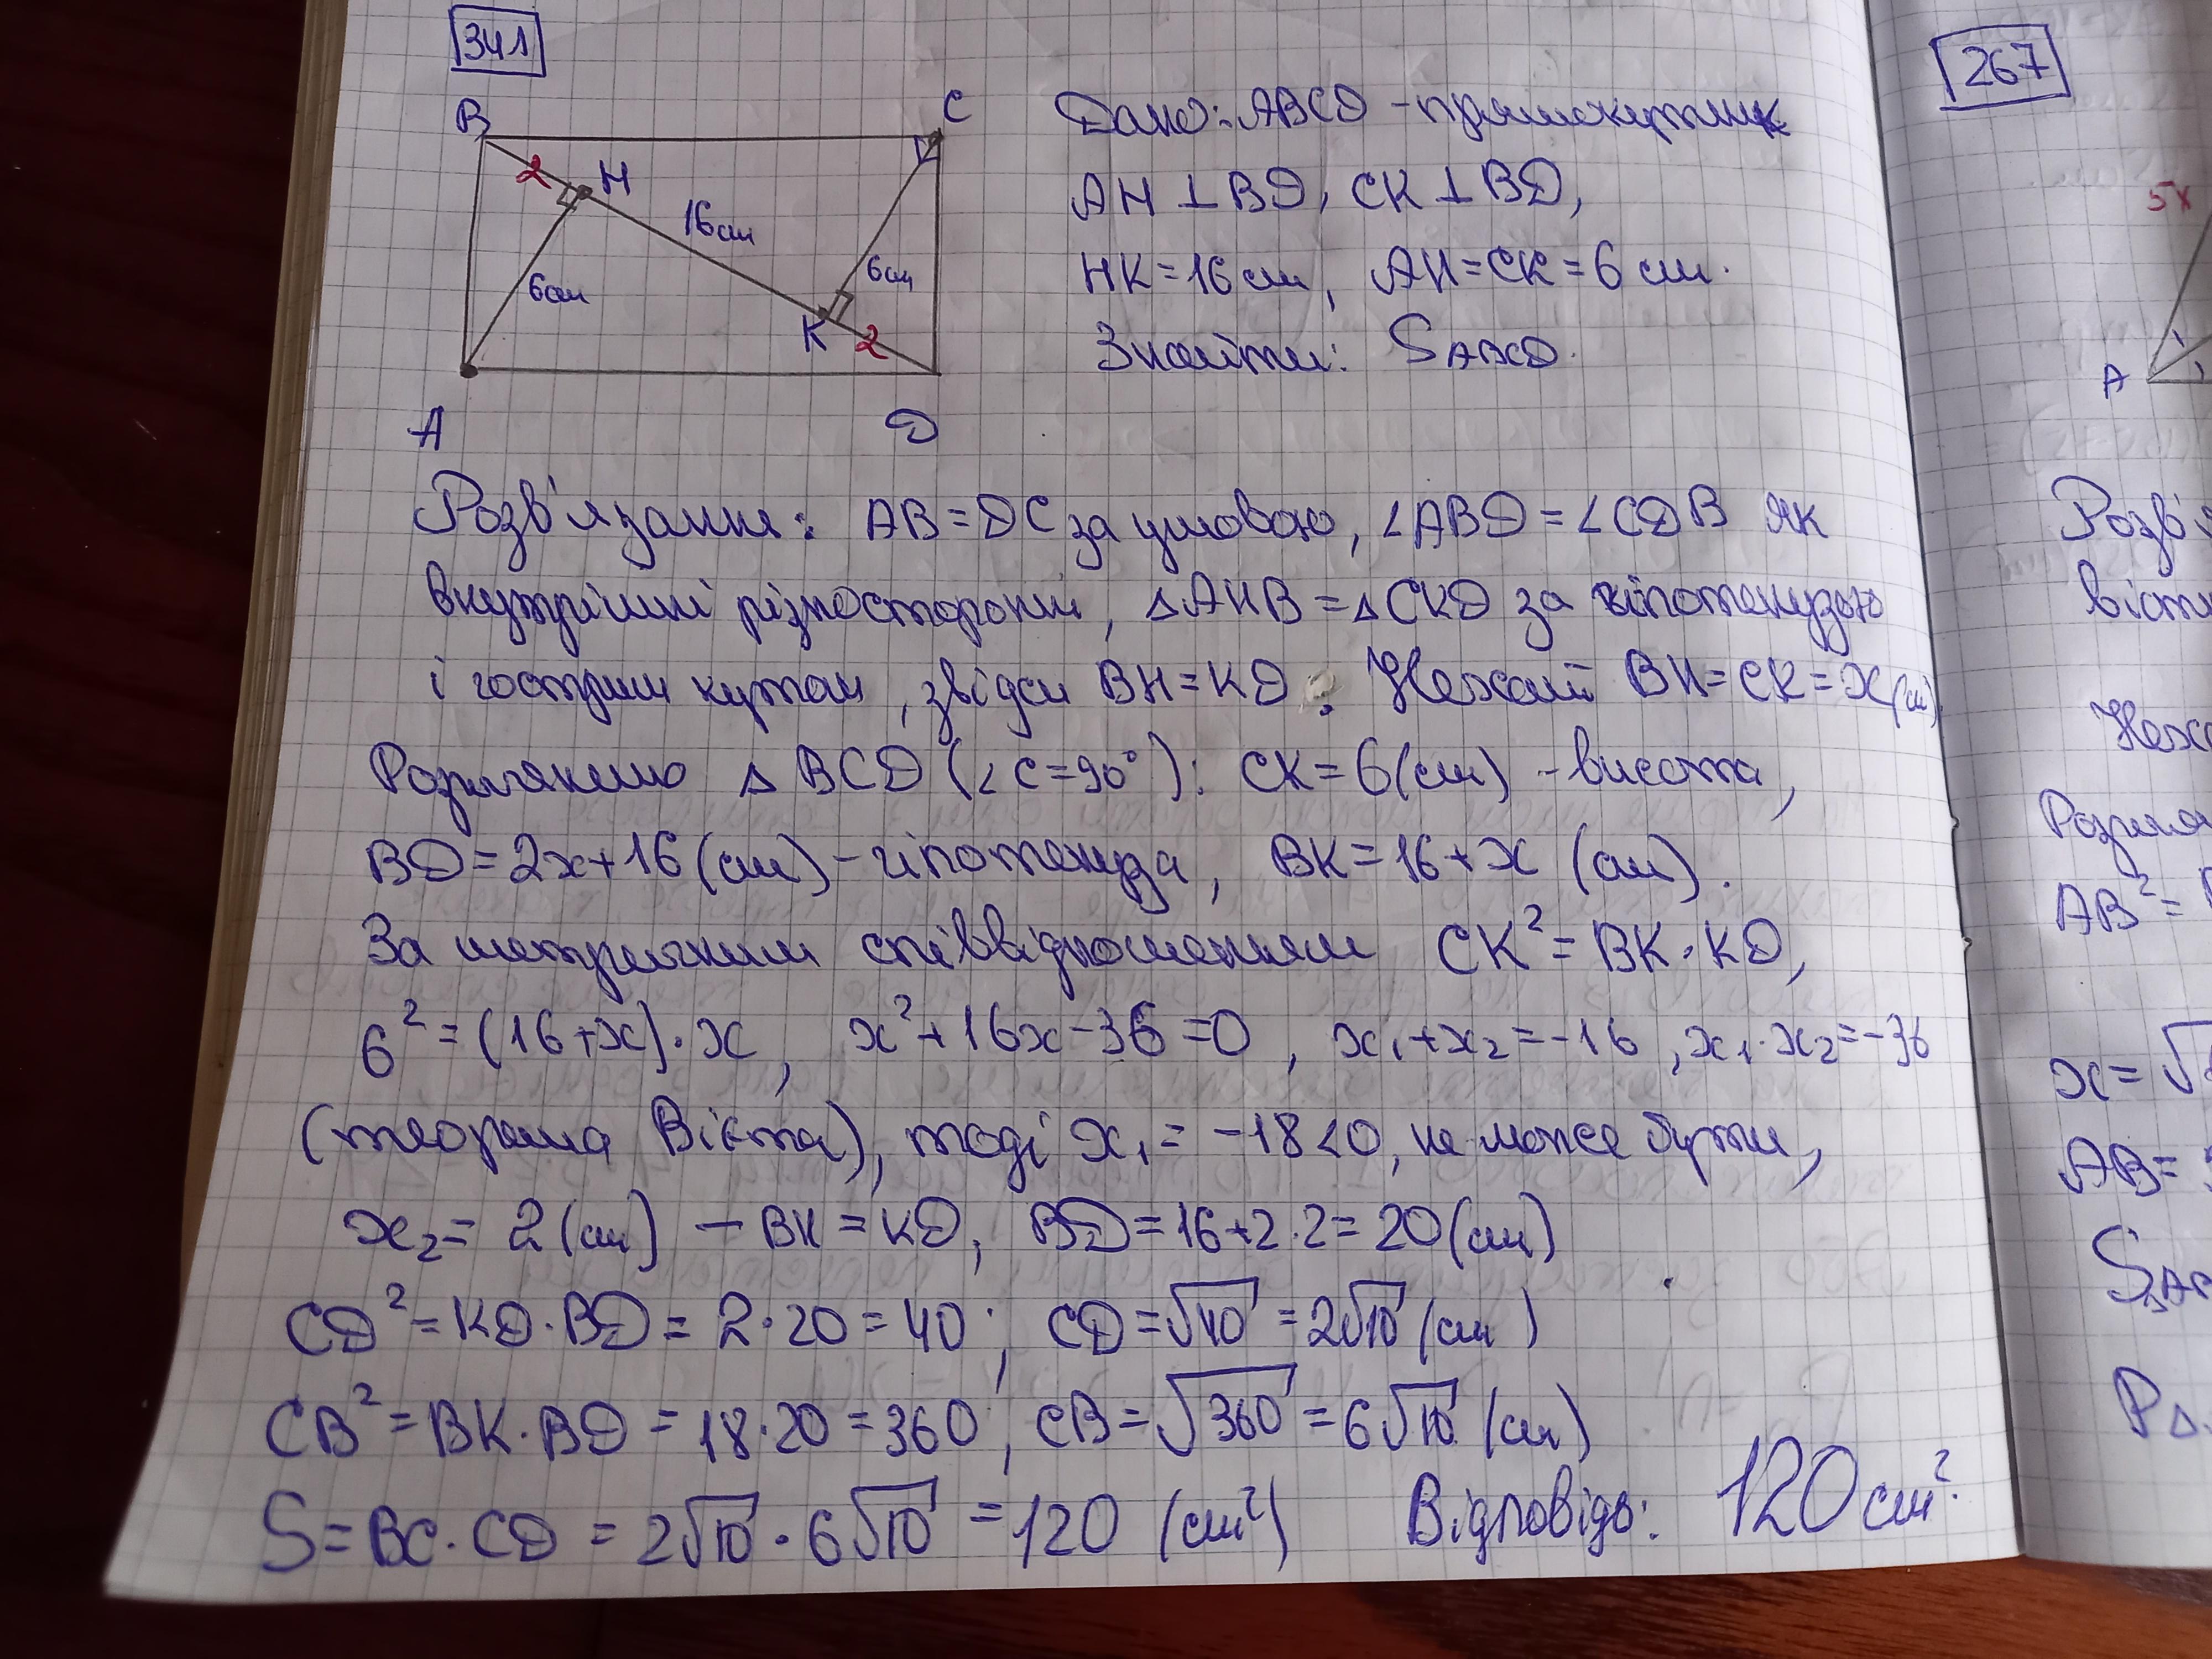 341
B
C
2
H
16 см
6см
6см
K
2
A
D
Дано: ABCD - прямокутник
AH ⊥ BD, CK ⊥ BD,
HK = 16 см, AH = CK = 6 см.
Знайти: SABCD.
Розв'язання: AB = DC за умовою, ∠ABD = ∠CDB як
внутрішні різносторонні, △AHB = △CKD за гіпотенузою
і гострим кутом, звідси BH = KD. Нехай BH = CK = x (см)
Розглянемо △ BCD (∠C = 90°): CK = 6 (см) - висота,
BD = 2x + 16 (см) - гіпотенуза, BK = 16 + x (см).
За метричним співвідношенням CK² = BK · KD,
6² = (16 + x) · x, x² + 16x - 36 = 0, x₁ + x₂ = -16, x₁ · x₂ = -36
(теорема Вієта), тоді x₁ = -18 < 0, не може бути,
x₂ = 2 (см) - BH = KD, BD = 16 + 2·2 = 20 (см)
CD² = KD · BD = 2 · 20 = 40; CD = √40 = 2√10 (см)
CB² = BK · BD = 18 · 20 = 360, CB = √360 = 6√10 (см)
S = BC · CD = 2√10 · 6√10 = 120 (см²) Відповідь: 120 см².
267
5x
A
Розв'я
Неха
Розгля
AB² =
x = √
AB =